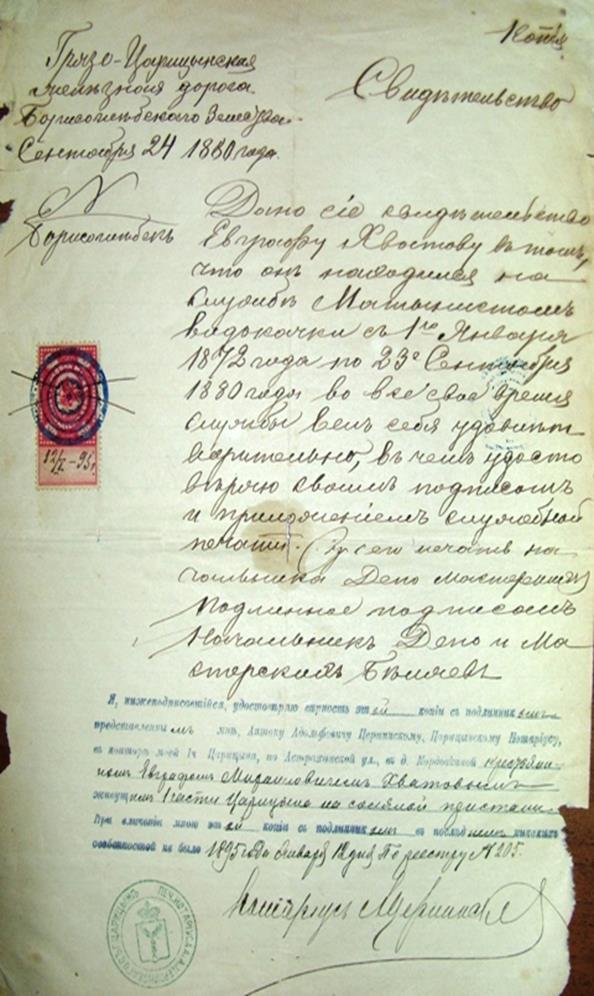 Копія
Грязо-Царицынская
желѣзная дорога.
Борисоглѣбскаго
Сентября 24 1880 года.
Свидѣтельство
N
Борисоглѣбскъ
Дано сіе свидѣтельство
Евграфу Хвостову въ томъ,
что онъ находился на
службѣ Машинистомъ
водокачки съ 1го Января
1872 года по 23е Сентября
1880 года, во все свое время
службы велъ себя удовлет
ворительно, въ чемъ удосто
вѣряю своимъ подписомъ
и приложеніемъ служебной
печати. У сего печать на
чальника Депо мастерскихъ
Подлинное подписалъ
Начальникъ Депо и Ма
стерскихъ Бѣляевъ
12/I - 95 г.
Я, нижеподписавшійся, удостовѣряю вѣрность этой копіи съ подлинникомъ
представленнымъ мнѣ, Антону Адольфовичу Цернинскому, Царицынскому Нотаріусу,
въ конторѣ моей 1 ч Царицына, по Астраханской ул., въ д.
Евграфомъ Михаиловичемъ Хватовымъ
живущимъ 1 части Царицына на соляной пристани.
При сличеніи мною этой копіи съ подлинникомъ въ послѣднемъ никакихъ
особенностей не было 1895 года Января 12 дня По реестру № 205.
Нотаріусъ Цернинскій